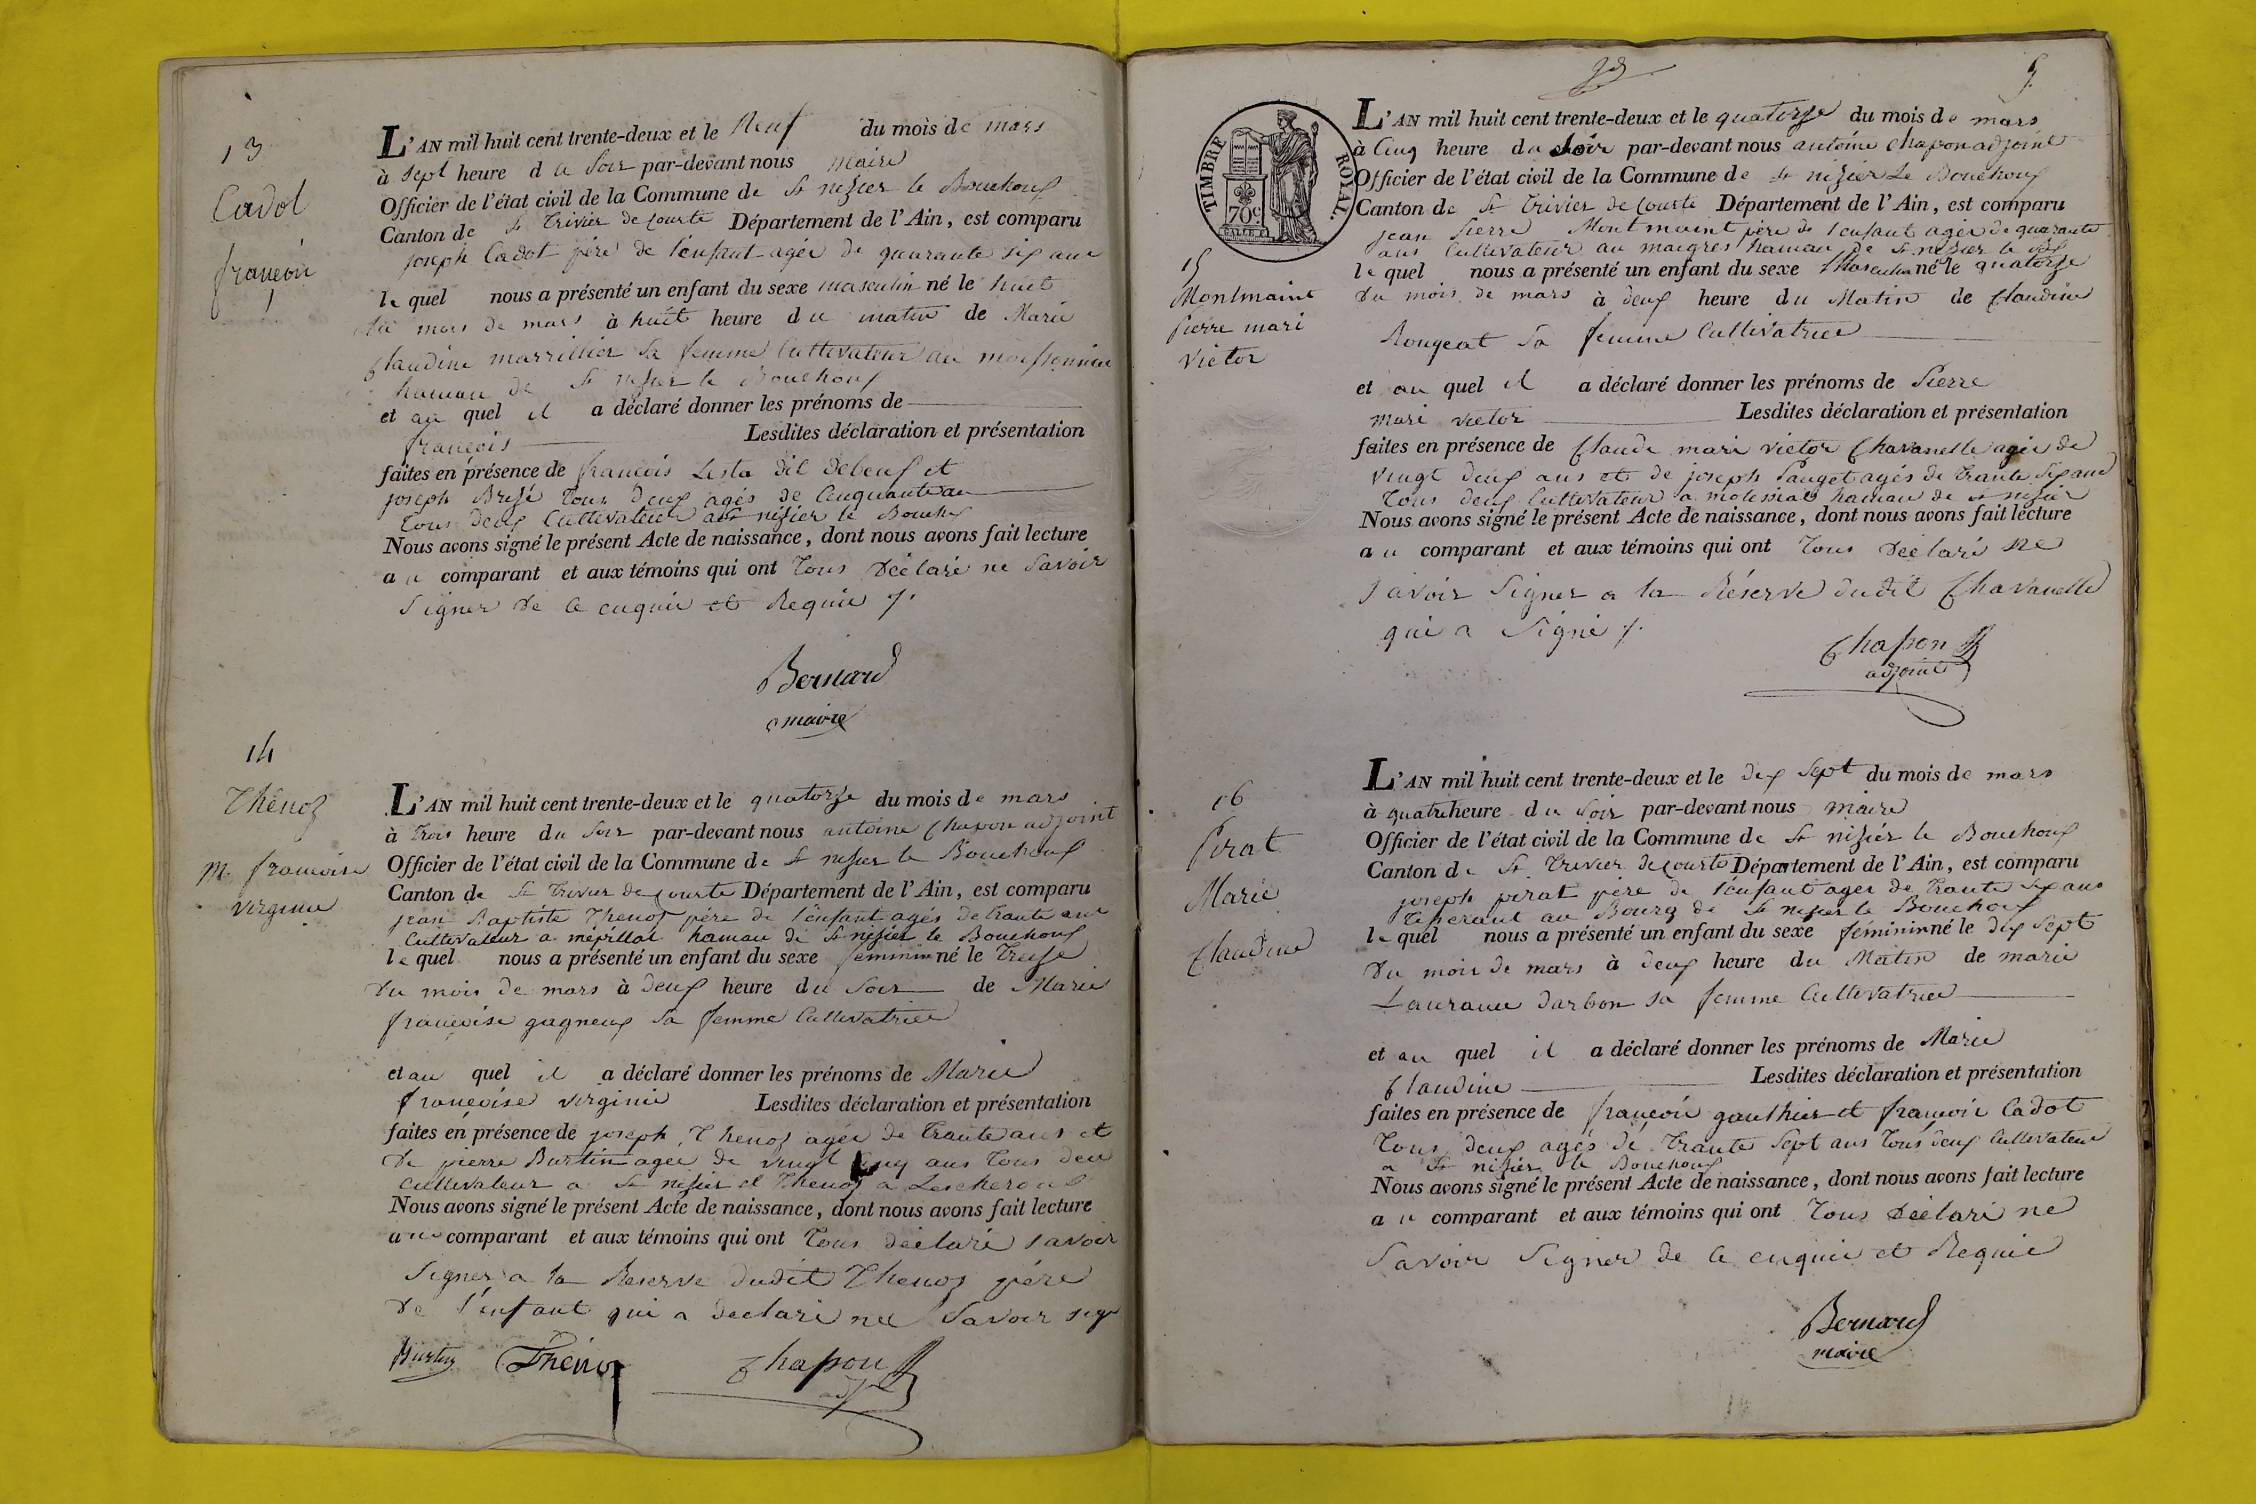 13
Cadot
françois
L'AN mil huit cent trente-deux et le Neuf du mois de mars
à sept heure du soir par-devant nous maire
Officier de l'état civil de la Commune de St nizier le Bouchoux
Canton de St Trivier de courte Département de l'Ain, est comparu
joseph Cadot père de l'enfant agée de quarante six ans
le quel nous a présenté un enfant du sexe masculin né le huit
du mois de mars à huit heure du matin de Marie
Claudine marrillier sa femme Cultivateur au moissonnier
hamau de St nizier le Bouchoux
et au quel il a déclaré donner les prénoms de
françois Lesdites déclaration et présentation
faites en présence de françois Lesta dit Debeuf et
joseph Brezé tous deux agés de Cinquante an
tous deux Cultivateur a St nizier le Bouchx
Nous avons signé le présent Acte de naissance, dont nous avons fait lecture
au comparant et aux témoins qui ont tous déclaré ne savoir
signer de ce enquie et Requie /.
Bernard
maire
14
Thénoz
M. françoise
virginie
L'AN mil huit cent trente-deux et le quatorze du mois de mars
à trois heure du soir par-devant nous antoine Chapon adjoint
Officier de l'état civil de la Commune de St nizier le Bouchoux
Canton de St Trivier de courte Département de l'Ain, est comparu
jean Baptiste Thenoz père de l'enfant agés de trante ans
Cultivateur a mépillat hamau de St nizier le Bouchoux
le quel nous a présenté un enfant du sexe feminin né le treize
du mois de mars à deux heure du soir de Marie
françoise gagneux sa femme Cultivatrice
et au quel il a déclaré donner les prénoms de Marie
françoise virginie Lesdites déclaration et présentation
faites en présence de joseph Thenoz agée de trante ans et
de pierre Burtin agee de vingt Cinq ans tous deu
cultivateur a St nizier et Thenoz a Lescheroux
Nous avons signé le présent Acte de naissance, dont nous avons fait lecture
au comparant et aux témoins qui ont tous déclaré savoir
signer a la Reserve dudit Thenoz père
de l'enfant qui a declaré ne savoir sign
Burtin Thénoz Chapon
adj
5
TIMBRE ROYAL.
70c
L'AN mil huit cent trente-deux et le quatorze du mois de mars
à Cinq heure du soir par-devant nous antoine Chapon adjoint
Officier de l'état civil de la Commune de St nizier Le Bouchoux
Canton de St Trivier de Courte Département de l'Ain, est comparu
jean Pierre Montmaint père de l'enfant agée de quarante
ans Cultivateur au maigres hamau de St nizier le Bx
le quel nous a présenté un enfant du sexe Masculin né le quatorze
du mois de mars à deux heure du Matin de Claudine
Rougeat sa femme Cultivatrice
15
Montmaint
Pierre mari
victor
et au quel il a déclaré donner les prénoms de Pierre
mari victor Lesdites déclaration et présentation
faites en présence de Claude mari victor Chavanelle agée de
vingt deux ans et de joseph Pauget agés de trante six ans
tous deux Cultivateur a molessiat hamau de St nizier
Nous avons signé le présent Acte de naissance, dont nous avons fait lecture
au comparant et aux témoins qui ont tous déclaré ne
savoir signer a la Réserve dudit Chavanelle
qui a signé /.
Chapon
adjoint
16
Pirat
Marie
Claudine
L'AN mil huit cent trente-deux et le dix sept du mois de mars
à quatre heure du soir par-devant nous maire
Officier de l'état civil de la Commune de St nizier le Bouchoux
Canton de St Trivier de courte Département de l'Ain, est comparu
joseph pirat père de l'enfant ager de trante six ans
Tisserant au Bourg de St nizier le Bouchoux
le quel nous a présenté un enfant du sexe féminin né le dix sept
du mois de mars à deux heure du Matin de marie
Lauranne darbon sa femme Cultivatrice
et au quel il a déclaré donner les prénoms de Marie
Claudine Lesdites déclaration et présentation
faites en présence de françois gauthier et françois Cadot
tous deux agés de trante sept ans tous deux Cultivateur
a St nizier le Bouchoux
Nous avons signé le présent Acte de naissance, dont nous avons fait lecture
au comparant et aux témoins qui ont tous déclaré ne
savoir signer de ce enquie et Requie
Bernard
maire